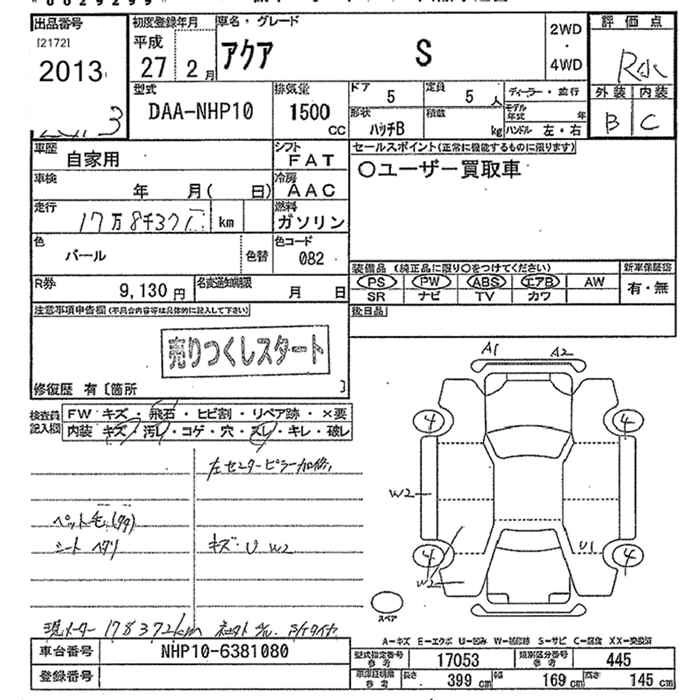 0029299
出品番号 初度登録年月 車名・グレード 評価点
[2172] 平成 アクア S 2WD
2013 27 年 2 月 ・
4WD R
型式 排気量 ドア 定員 ディーラー・並行 外装 内装
DAA-NHP10 1500 5 5 人 モデル年式 年 B C
3 CC 形状 積載 ハンドル 左・右
ハッチB kg
車歴 シフト セールスポイント(正常に機能するものに限ります)
自家用 FAT 〇ユーザー買取車
車検 冷房
年 月( 日) AAC
走行 燃料
17万8千37 km ガソリン
色 色替 色コード
パール 082
装備品 (純正品に限り〇をつけてください) 新車保証書
R券 名変通知期限 PS PW ABS エアB AW 有・無
9,130 円 月 日 SR ナビ TV カワ
注意事項申告欄(不具合内容等は具体的に記入して下さい) 後日品
売りつくしスタート
修復歴 有 [箇所 ]
検査員 FW キズ・飛石・ヒビ割・リペア跡・×要
記入欄 内装 キズ・汚れ・コゲ・穴・スレ・キレ・破レ
A1 A2
4 4
左センターピラー加修
W2
ペット毛
シート ヘタリ キズ・U W2
U1
4 4
W2
スペア
現メーター 178372km
A-キズ E-エクボ U-凹み W-補修跡 S-サビ C-腐食 XX-交換済
車台番号 NHP10-6381080 型式指定番号 参考 17053 類別区分番号 参考 445
登録番号 車庫証明 参考 長さ 399 cm 幅 169 cm 高さ 145 cm